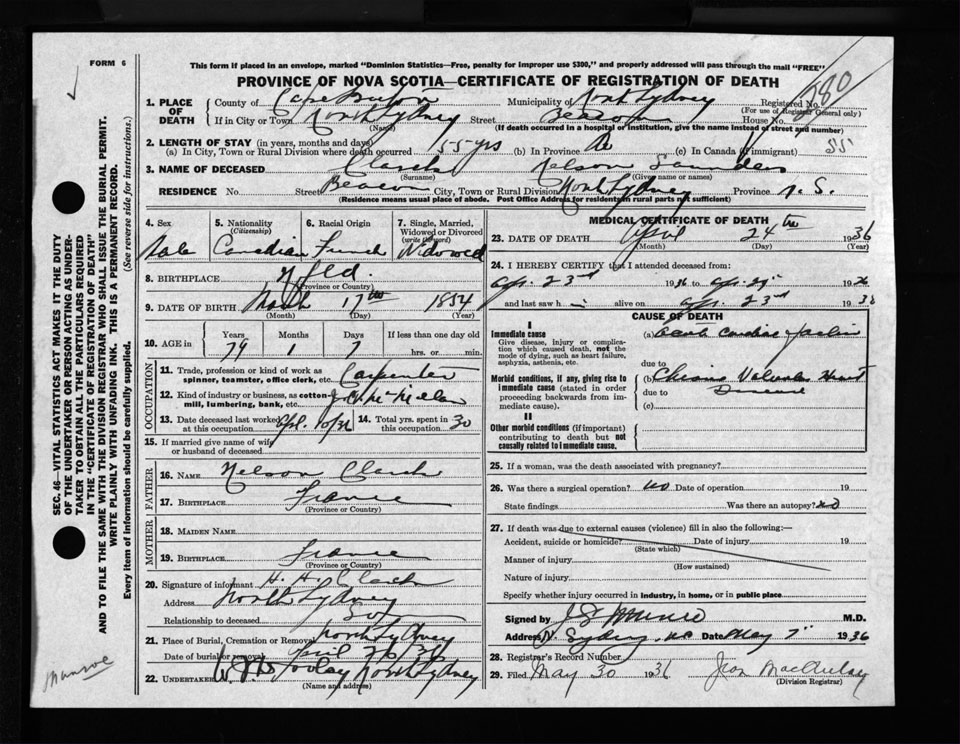 FORM 6
This form if placed in an envelope, marked "Dominion Statistics—Free, penalty for improper use $300," and properly addressed will pass through the mail "FREE"
PROVINCE OF NOVA SCOTIA—CERTIFICATE OF REGISTRATION OF DEATH
1. PLACE OF DEATH
County of Cape Breton Municipality of North Sydney Registered No. 280
(For use of Registrar General only)
If in City or Town North Sydney Street Beacon House No.
(Name) (If death occurred in a hospital or institution, give the name instead of street and number)
2. LENGTH OF STAY (in years, months and days)
(a) In City, Town or Rural Division where death occurred 55 yrs (b) In Province (c) In Canada (if immigrant) 55
3. NAME OF DECEASED Nelson
(Surname) (Given name or names)
RESIDENCE No. Street Beacon City, Town or Rural Division North Sydney Province N. S.
(Residence means usual place of abode. Post Office Address for residents in rural parts not sufficient)
4. Sex Male
5. Nationality (Citizenship) Canadian
6. Racial Origin French
7. Single, Married, Widowed or Divorced (write the word) Widowed
8. BIRTHPLACE Nfld.
(Province or Country)
9. DATE OF BIRTH March 17th 1854
(Month) (Day) (Year)
10. AGE in Years Months Days If less than one day old
79 1 7 hrs. or min.
OCCUPATION
11. Trade, profession or kind of work as spinner, teamster, office clerk, etc. Carpenter
12. Kind of industry or business, as cotton-mill, lumbering, bank, etc.
13. Date deceased last worked at this occupation Apl. 10/36 14. Total yrs. spent in this occupation 30
15. If married give name of wife or husband of deceased
FATHER
16. NAME Nelson
17. BIRTHPLACE France
(Province or Country)
MOTHER
18. MAIDEN NAME
19. BIRTHPLACE France
(Province or Country)
20. Signature of informant H. A.
Address North Sydney
Relationship to deceased Son
21. Place of Burial, Cremation or Removal North Sydney
Date of burial or removal April 26 36
22. UNDERTAKER North Sydney
(Name and address)
MEDICAL CERTIFICATE OF DEATH
23. DATE OF DEATH April 24th 1936
(Month) (Day) (Year)
24. I HEREBY CERTIFY that I attended deceased from:
Apr. 23rd 1936 to Apr. 1936
and last saw h alive on Apr. 23rd 193
CAUSE OF DEATH
I
Immediate cause
Give disease, injury or complication which caused death, not the mode of dying, such as heart failure, asphyxia, asthenia, etc.
(a) Acute Cardiac
due to
Morbid conditions, if any, giving rise to immediate cause (stated in order proceeding backwards from immediate cause).
(b) Chronic Valvular Heart
due to Disease
(c)
II
Other morbid conditions (if important) contributing to death but not causally related to immediate cause.
25. If a woman, was the death associated with pregnancy?
26. Was there a surgical operation? no Date of operation 19
State findings Was there an autopsy? no
27. If death was due to external causes (violence) fill in also the following:—
Accident, suicide or homicide? Date of injury 19
(State which)
Manner of injury
(How sustained)
Nature of injury
Specify whether injury occurred in industry, in home, or in public place
Signed by Munro M.D.
Address N. Sydney Date May 7 1936
28. Registrar's Record Number
29. Filed May 30 1936 Jean
(Division Registrar)
SEC. 46—VITAL STATISTICS ACT MAKES IT THE DUTY
OF THE UNDERTAKER OR PERSON ACTING AS UNDERTAKER
TO OBTAIN ALL THE PARTICULARS REQUIRED
IN THE "CERTIFICATE OF REGISTRATION OF DEATH"
AND TO FILE THE SAME WITH THE DIVISION REGISTRAR WHO SHALL ISSUE THE BURIAL PERMIT.
WRITE PLAINLY WITH UNFADING INK. THIS IS A PERMANENT RECORD.
Every item of information should be carefully supplied. (See reverse side for instructions.)
Munroe